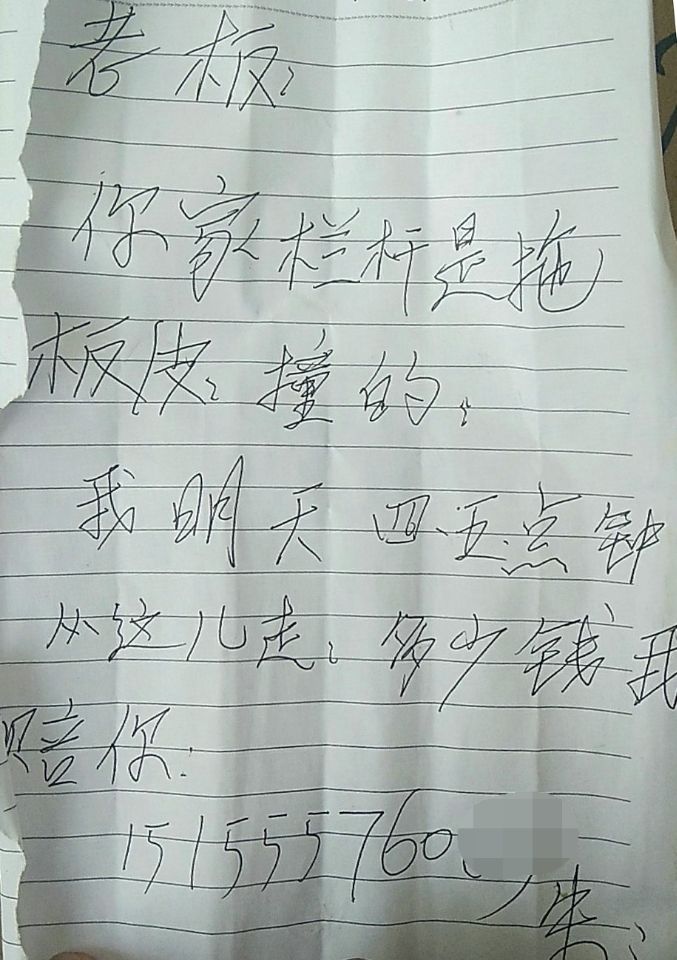 老板:
你家栏杆是拖
板皮:撞的:
我明天四、五点钟
从这儿走:多少钱我
赔你:
151555760
朱: